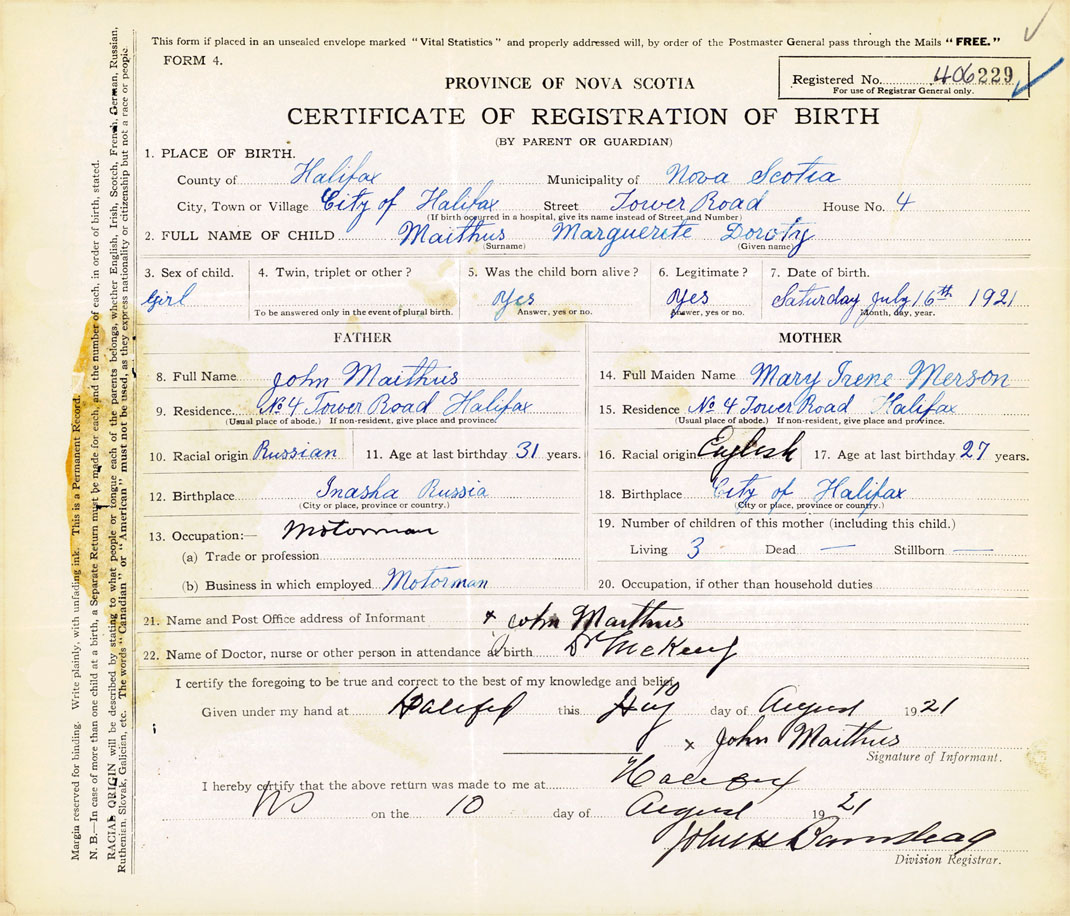 This form if placed in an unsealed envelope marked "Vital Statistics" and properly addressed will, by order of the Postmaster General pass through the Mails "FREE."
FORM 4.
Registered No. 406229
For use of Registrar General only.
PROVINCE OF NOVA SCOTIA
CERTIFICATE OF REGISTRATION OF BIRTH
(BY PARENT OR GUARDIAN)
1. PLACE OF BIRTH.
County of Halifax Municipality of Nova Scotia
City, Town or Village City of Halifax Street Tower Road House No. 4
(If birth occurred in a hospital, give its name instead of Street and Number)
2. FULL NAME OF CHILD Maithus Marguerite Doroty
(Surname) (Given name)
3. Sex of child. 4. Twin, triplet or other? 5. Was the child born alive? 6. Legitimate? 7. Date of birth.
Girl Yes Yes Saturday July 16th 1921
To be answered only in the event of plural birth. Answer, yes or no. Answer, yes or no. Month, day, year.
FATHER MOTHER
8. Full Name John Maithus 14. Full Maiden Name Mary Irene Merson
9. Residence No 4 Tower Road Halifax 15. Residence No 4 Tower Road Halifax
(Usual place of abode.) If non-resident, give place and province. (Usual place of abode.) If non-resident, give place and province.
10. Racial origin Russian 11. Age at last birthday 31 years. 16. Racial origin English 17. Age at last birthday 27 years.
12. Birthplace Inasha Russia 18. Birthplace City of Halifax
(City or place, province or country.) (City or place, province or country.)
13. Occupation:— Motorman 19. Number of children of this mother (including this child.)
(a) Trade or profession Living 3 Dead — Stillborn —
(b) Business in which employed Motorman 20. Occupation, if other than household duties
21. Name and Post Office address of Informant x John Maithus
22. Name of Doctor, nurse or other person in attendance at birth Dr
I certify the foregoing to be true and correct to the best of my knowledge and belief,
Given under my hand at Halifax this 10 day of August 1921
x John Maithus
Signature of Informant.
I hereby certify that the above return was made to me at Halifax
on the 10 day of August 1921
Division Registrar.
Margin reserved for binding. Write plainly, with unfading ink. This is a Permanent Record.
N. B.—In case of more than one child at a birth, a Separate Return must be made for each, and the number of each, in order of birth, stated.
RACIAL ORIGIN will be described by stating to what people or tongue each of the parents belongs, whether English, Irish, Scotch, French, German, Russian,
Ruthenian, Slovak, Galicien, etc. The words "Canadian" or "American" must not be used, as they express nationality or citizenship but not a race or people.